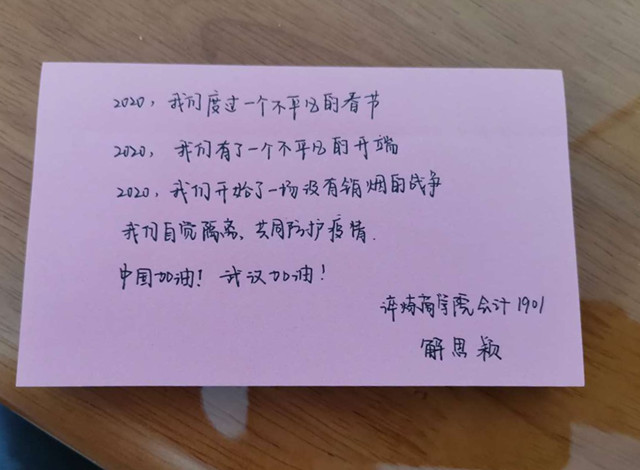 2020，我们度过一个不平凡的春节
2020，我们有了一个不平凡的开端
2020，我们开始了一场没有销烟的战争
我们自觉隔离、共同防护疫情.
中国加油！武汉加油！
商学院会计1901
解思颖